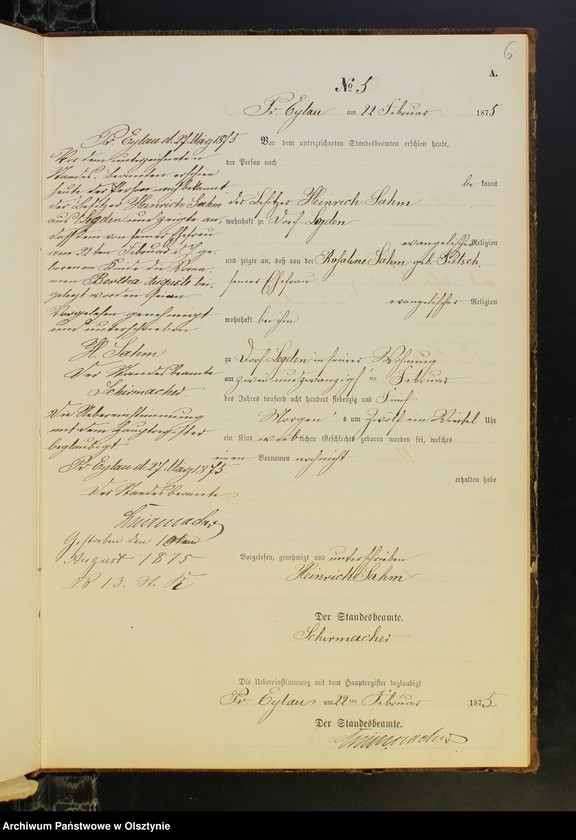 6
A.
No 5
Pr. Eylau am 22 Februar 1875
Vor dem unterzeichneten Standesbeamten erschien heute,
der Person nach
be kannt
der Besitzer Heinrich Sahm
wohnhaft zu Dorf
evangelischer Religion
und zeigte an, daß von der Rosaline Sahm geb.
seiner Ehefrau
evangelischer Religion
wohnhaft bei ihm
zu Dorf in seiner Wohnung
am zwei und zwanzigsten Februar
des Jahres tausend acht hundert siebenzig und fünf
Morgens um zwölf ein Viertel Uhr
ein Kind weiblichen Geschlechts geboren worden sei, welches
einen Vornamen noch nicht
erhalten habe
Vorgelesen, genehmigt und unterschrieben
Heinrich Sahm
Der Standesbeamte.
Schirmacher
Die Uebereinstimmung mit dem Hauptregister beglaubigt
Pr. Eylau am 22ten Februar 1875.
Der Standesbeamte.
Schirmacher
Pr. Eylau d. 27 März 1875
Vor dem unterzeichneten
Standes-Beamten erschien
heute der Person nach bekannt
der Besitzer Heinrich Sahm
aus und zeigte an,
daß dem von seiner Ehefrau
am 22ten Februar d. J. ge-
borenen Kinde die Vorna-
men Bertha Auguste bei-
gelegt worden seien
Vorgelesen genehmigt
und unterschrieben
H. Sahm
Der Standesbeamte
Schirmacher
Die Uebereinstimmung
mit dem Hauptregister
beglaubigt.
Pr. Eylau d. 27 März 1875.
Der Standesbeamte
Schirmacher
Gestorben den
August 1875
No 13. St. R
Archiwum Państwowe w Olsztynie